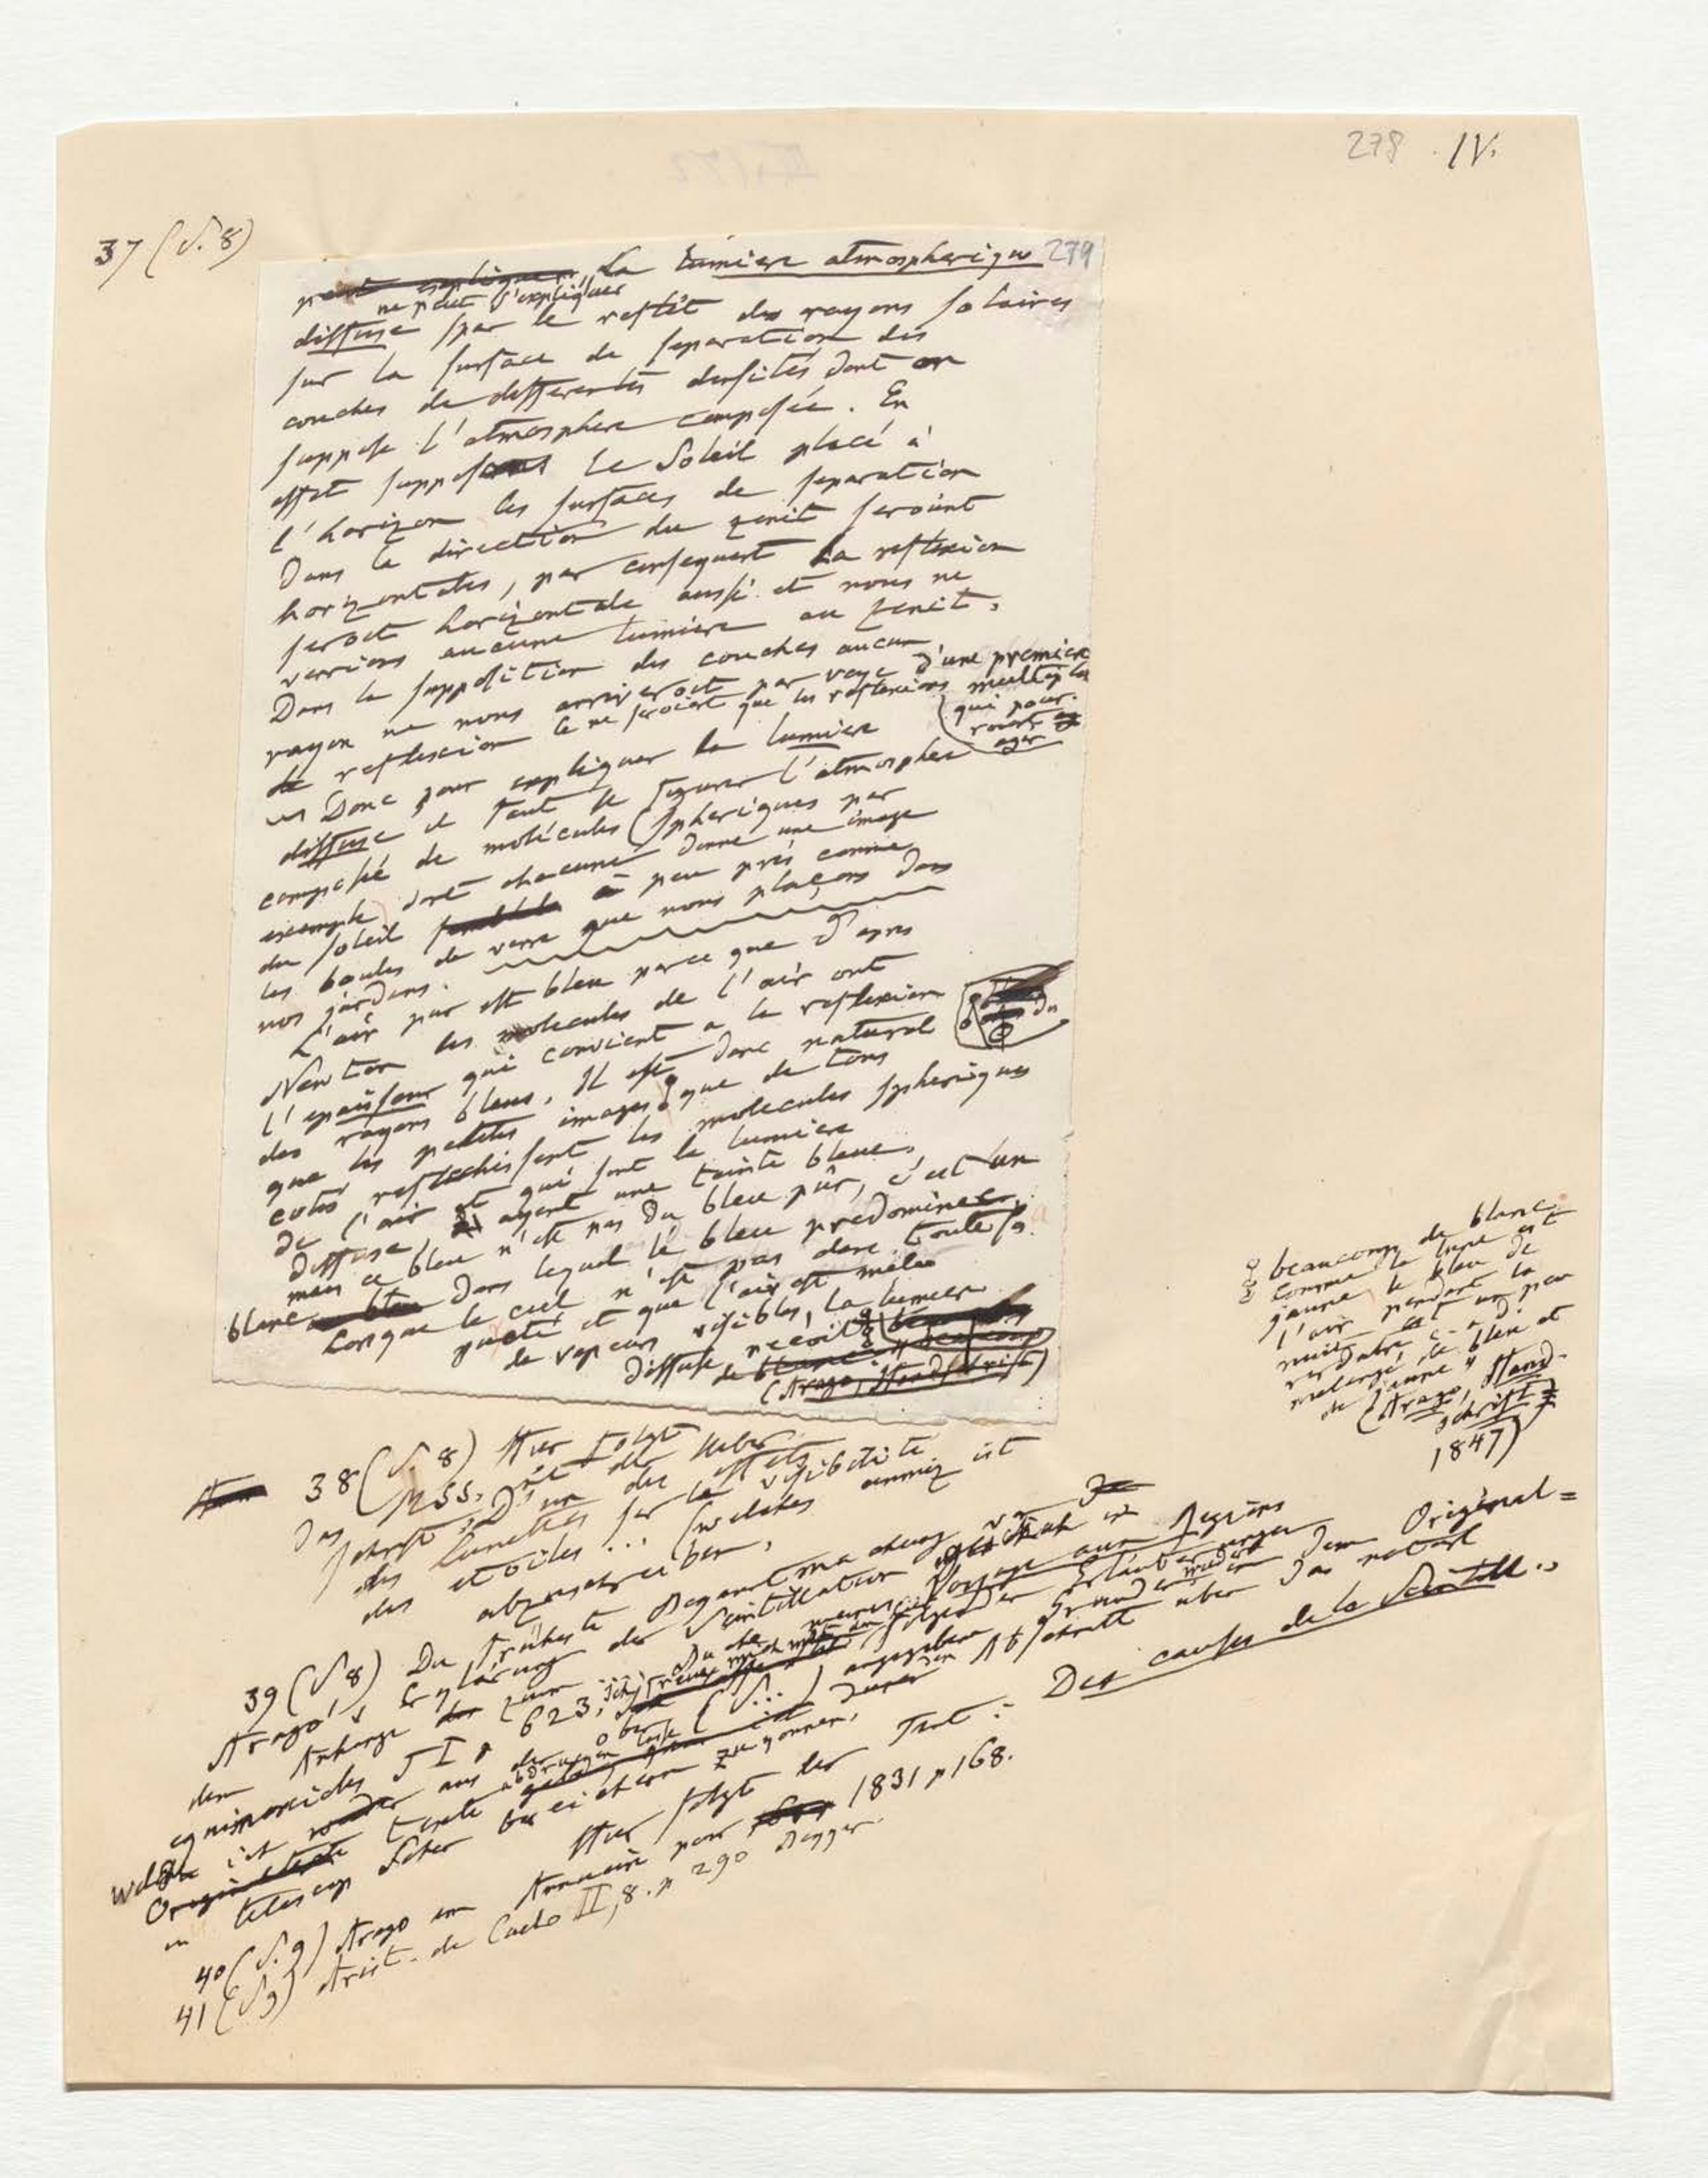 278 IV.
37 (S. 8)
279
peut expliquer La lumiere atmospherique
ne peut s'expliquer
diffuse par le reflêt des rayons solaires
sur la surface de separation des
couches de differentes densités dont on
suppose l'atmosphere composée. En
effet supposons le Soleil placé à
l'horizon les surfaces de separation
dans la direction du zenit seroient
horizontales, par consequent la reflexion
seroit horizontale aussi et nous ne
verrions aucune lumiere au zenit.
Dans la supposition des couches aucun
rayon ne nous arriveroit par voye d'une premiere
de reflexion Ce ne seroient que les reflexions multiples
qui pour
roient
agir
Donc pour expliquer la lumiere
diffuse il faut se figurer l'atmosphere
composée de molécules (spheriques par
exemple) dont chacune donne une image
du soleil à peu près comme
les boules de verre que nous plaçons dans
nos jardins.
L'air pur est bleu parce que d'apres
Newton les molecules de l'air ont
l'epaisseur qui convient a la reflexion
des rayons bleus. Il est donc naturel
que les petites images que de tous
cotés reflechissent les molecules spheriques
de l'air et qui sont la lumiere
diffuse, ayent une teinte bleue,
mais ce bleu n'est pas du bleu pûr, c'est un
blanc dans lequel le bleu predomine.
Lorsque le ciel n'est pas dans toute sa
pureté et que l'air est mêlé
de vapeurs visibles, la lumiere
diffuse reçoit
(Arago, Handschrift)
beaucoup de blanc.
Comme la lune est
jaune le bleu de
l'air pendant la
nuit est un peu
verdatre c-a-d.
melangé de bleu et
de jaune"
(Arago, Hand-
schrift
1847)
38 (S. 8) Hier folgt
das MSS.
Schrift: D'un des effets
des lunettes sur la visibilité
des etoiles ... (welches
abzuschreiben,
39 (S 8) Die früheste
Arago's Erklärung der Scintillation
dem Anhange zum Voyage aux Regions
equinoxiales T I p 623, ich freue mich
folgender Erläuterungen
welche ich aus dem
Original=
Texte oben (S...) angegeben
Abschnitt über das
bereichern zu können.
Hier folgt der Text: Des causes de la Scintill..
40 (S. 9) Arago im Annuaire pour 1831 p 168.
41 (S 9) Arist. de Caelo II, 8. p 290 Bekker.